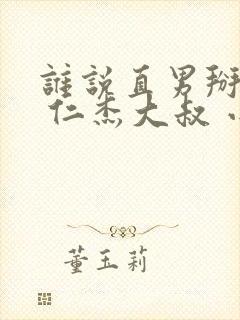 誰說直男掰
仁杰大叔
董玉莉